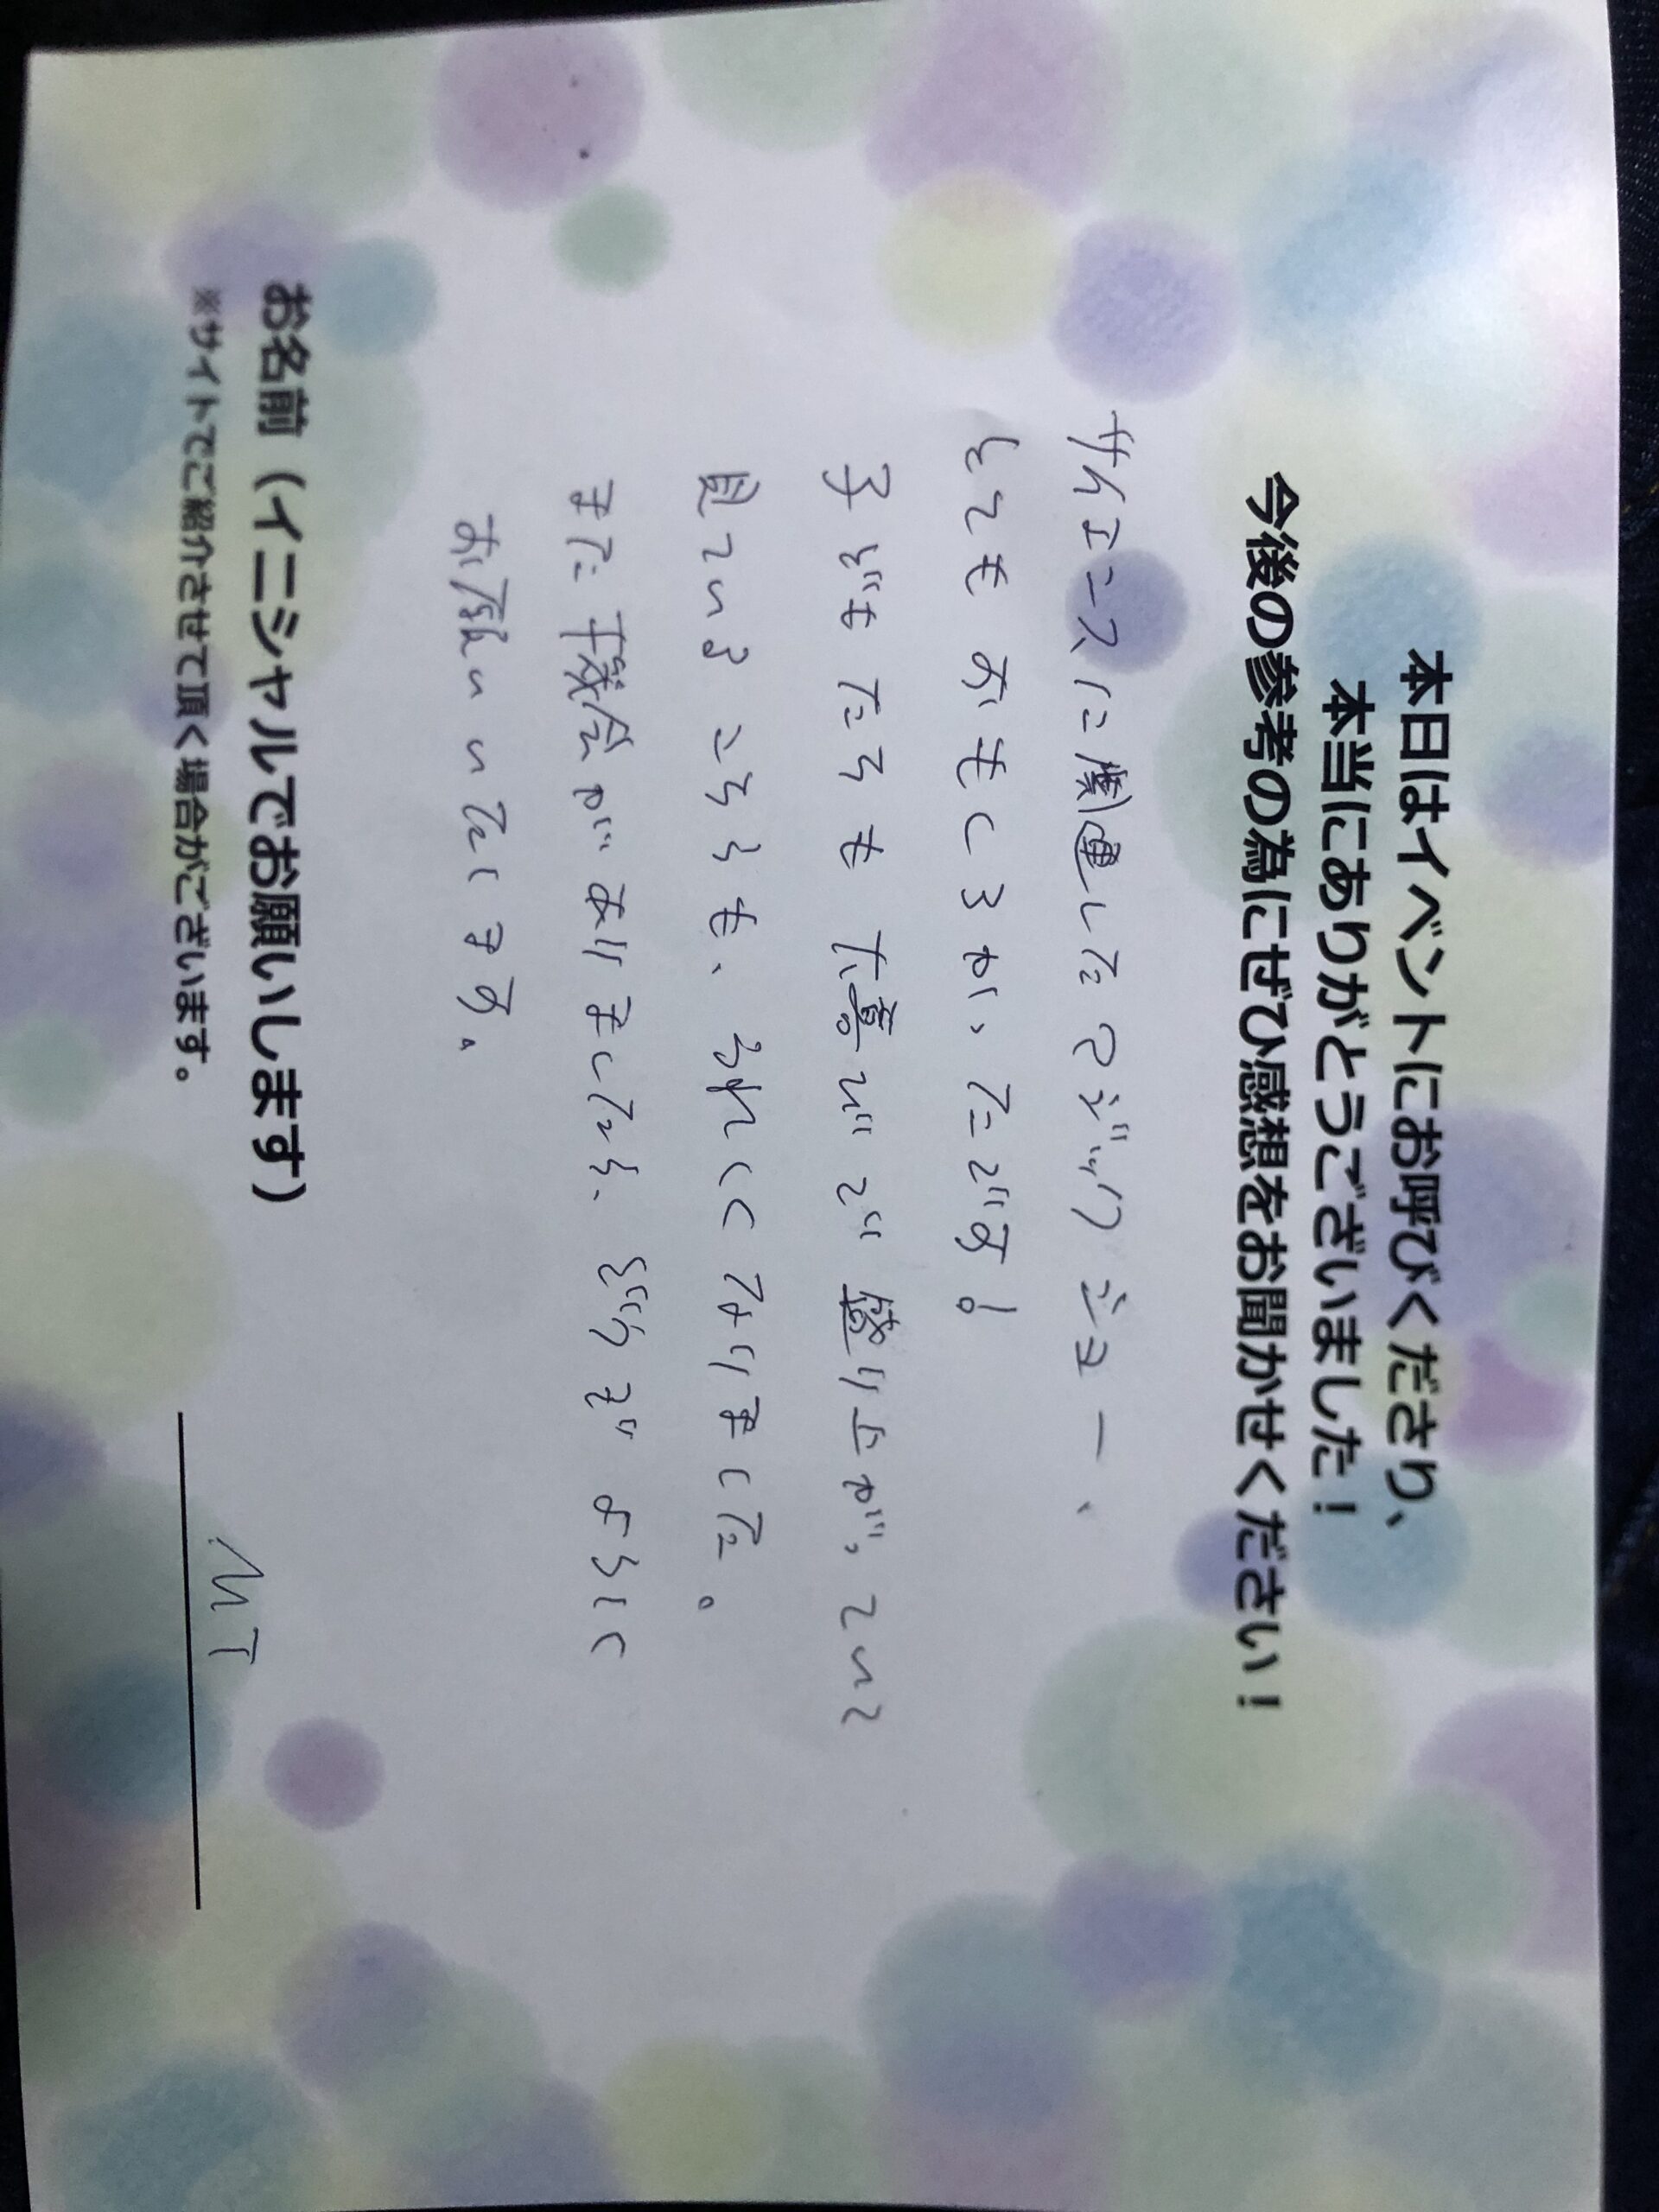 本日はイベントにお呼びくださり、
本当にありがとうございました！
今後の参考の為にぜひ感想をお聞かせください！
サイエンスに関連したマジックショー、
とてもおもしろかったです！
子どもたちも大喜びで盛り上がっていて
見ているこちらも、うれしくなりました。
また機会がありましたら、どうぞよろしく
お願いいたします。
お名前（イニシャルでお願いします）
MT
※サイトでご紹介させて頂く場合がございます。